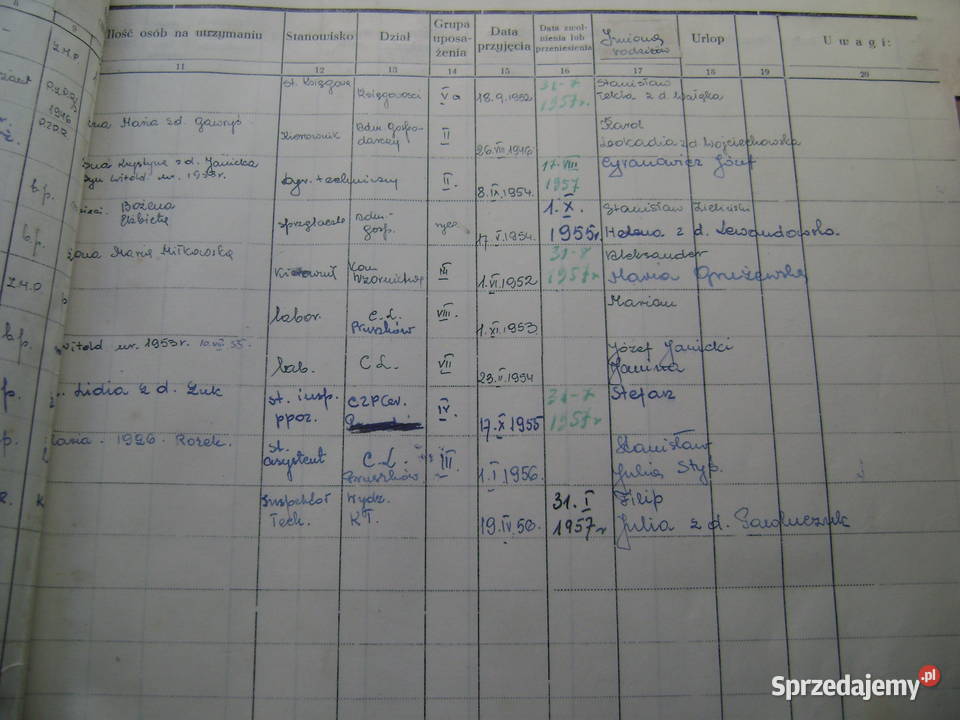 Ilość osób na utrzymaniu Stanowisko Dział Grupa uposa- żenia Data przyjęcia Data zwol- nienia lub przeniesienia Imiona rodziców Urlop Uwagi:
11 12 13 14 15 16 17 18 19 20
st. Księgowa Księgowości V a 18.9.1952 31-X 1957r. Stanisław
Tekla z d.
Maria zd. Gawryś Kierownik Adm. Gospo- darczy II 26.VIII.1946 Karol
Leokadia z d Wojciechowska
Krystyna z d. Janicka
Syn Witold. ur. 1953r. techniczny II. 8.IX.1954. 17.VIII 1957 Cyranowicz Józef
Bożena
Elżbieta sprzątaczka Adm.- gosp. rycz. 17.V.1954. 1.X. 1955r. Stanisław Zieliński
Helena z d. Lewandowska
żona Maria Miłkowska Kierownik Kom Wzornictwa III 1.VI.1952 31-X 1957r Aleksander
Maria
labor. C.L. Pruszków VIII. 1.XI.1953 Marian
Witold ur. 1953r. 10.VII 55. lab. C L. VII 23.II.1954 Józef Janicki
Janina
Lidia z d. Żuk st. insp. ppoż. CZPCer. IV. 17.X 1955 31-X 1957r Stefan
1926. Rożek. st. asystent C.L. Pruszków. III. 1.I.1956. Stanisław
Julia Styp.
Inspektor Tech. Wydz. KT. 19.IV.56. 31.I 1957r Filip
Julia z d.
Z.M.P
b.p.
b.p.
Z.M.P
b.p.
Sprzedajemy.pl